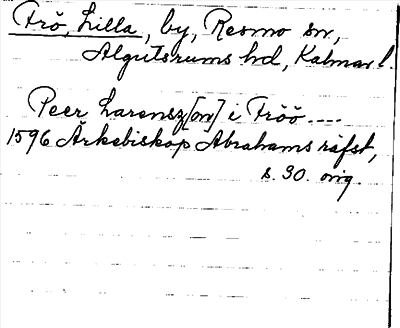 Frö, Lilla, by, Resmo sn,
Algutsrums hd, Kalmar l.
Peer Larensz[on] i Fröö....
1596 Ärkebiskop Abrahams räfst,
s. 30. orig.